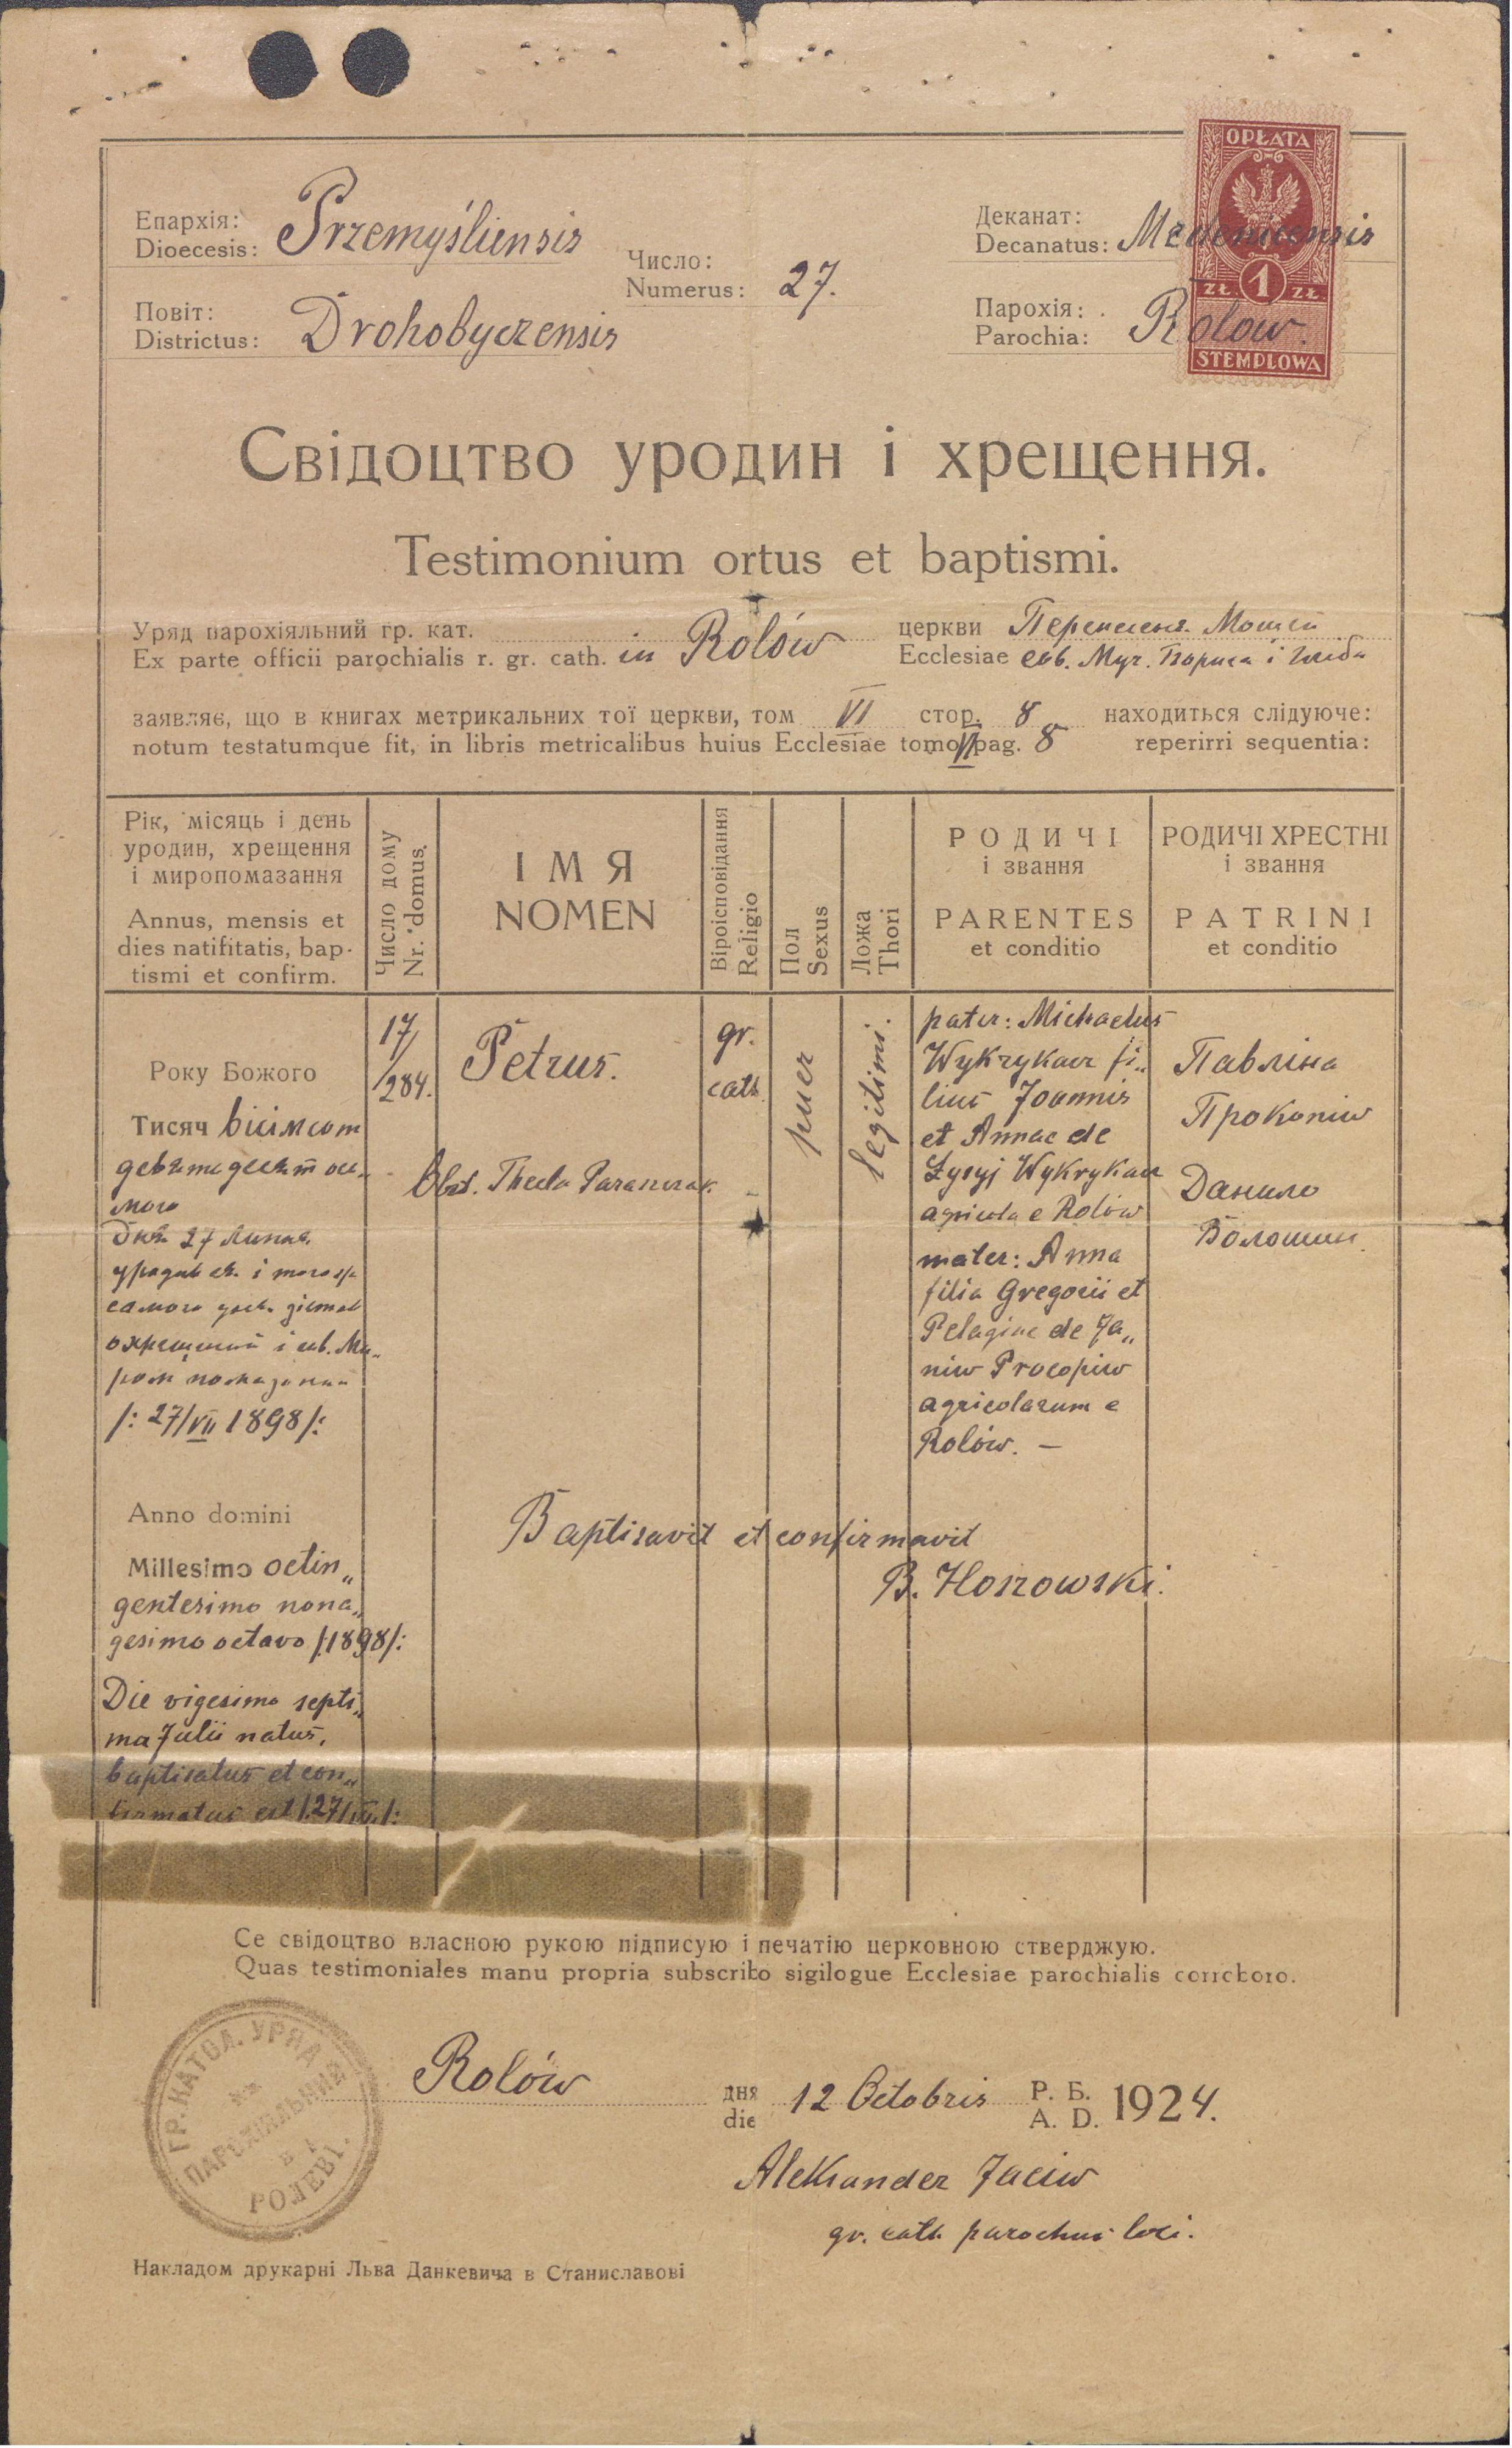 OPŁATA
ZŁ. 1 ZŁ.
STEMPLOWA
Епархія:
Dioecesis: Przemyśliensis
Число:
Numerus: 27.
Деканат:
Decanatus: Medenicensis
Повіт:
Districtus: Drohobyczensis
Парохія:
Parochia: Rolow.
Свідоцтво уродин і хрещення.
Testimonium ortus et baptismi.
Уряд парохіяльний гр. кат. церкви Перенесеня Мощей
Ex parte officii parochialis r. gr. cath. in Rolów Ecclesiae свв. Муч. Бориса і Гліба
заявляє, що в книгах метрикальних тої церкви, том VI стор. 8 находиться слідуюче:
notum testatumque fit, in libris metricalibus huius Ecclesiae tomo VI pag. 8 reperirri sequentia:
Рік, місяць і день
уродин, хрещення
і миропомазання
Annus, mensis et
dies natifitatis, bap-
tismi et confirm.
Число дому
Nr. domus.
ІМЯ
NOMEN
Віроісповідання
Religio
Пол
Sexus
Ложа
Thori
РОДИЧІ
і звання
PARENTES
et conditio
РОДИЧІ ХРЕСТНІ
і звання
PATRINI
et conditio
Року Божого
Тисяч вісімсот
девятьдесят ось-
мого
Дня 27 Липня
уродив ся і того ж
самого дня зістав
охрещений і св. Ми„
ром помазаний
/: 27/VII 1898/:
Anno domini
Millesimo octin„
gentesimo nona„
gesimo octavo /:1898/:
Die vigesima septi„
ma Julii natus,
baptisatus et con„
firmatus est /:27/VII/:
17/
/284.
Petrus.
Obst. Thecla Paraszczak
gr.
cath.
puer
legitimi.
pater: Michaelus
Wykrykacz fi„
lius Joannis
et Annae de
Łysyj Wykrykacz
agricola e Rolów
mater: Anna
filia Gregorii et
Pelagiae de Ja„
niw Procopiw
agricolarum e
Rolów. —
Павліна
Прокопів
Данило
Волошин
Baptisavit et confirmavit
B. Hoszowski.
Се свідоцтво власною рукою підписую і печатію церковною стверджую.
Quas testimoniales manu propria subscribo sigilogue Ecclesiae parochialis corroboro.
ГР. КАТОЛ. УРЯД
ПАРОХІЯЛЬНИЙ
В
РОЛЕВІ.
Rolów
дня
die 12 Octobris Р. Б.
A. D. 1924.
Aleksander Jaciw
gr. cath. parochus loci.
Накладом друкарні Льва Данкевича в Станиславові